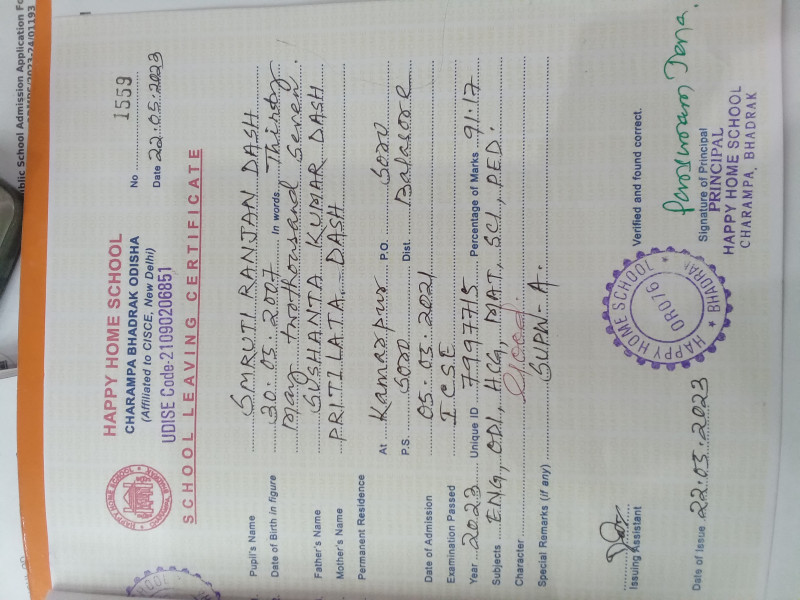 blic School Admission Application Fo
2023-24/01193
HAPPY HOME SCHOOL
CHARAMPA BHADRAK ODISHA
(Affiliated to CISCE, New Delhi)
UDISE Code-21090206851
SCHOOL LEAVING CERTIFICATE
No 1559
Date 22.05.2023
Pupil's Name SMRUTI RANJAN DASH
Date of Birth in figure 30.05.2007 In words Thirty
May twothousand seven.
Father's Name SUSHANTA KUMAR DASH
Mother's Name PRITILATA DASH
Permanent Residence
At Kamarpur P.O. Soro
P.S. Soro Dist. Balasore
Date of Admission 05.05.2021
Examination Passed I C S E
Year 2023 Unique ID 7997715 Percentage of Marks 91.17
Subjects ENG, ODI, HCG, MAT, SCI, P.ED.
Character Good.
Special Remarks (if any) SUPW-A.
Verified and found correct.
Issuing Assistant
Date of Issue 22.05.2023
HAPPY HOME SCHOOL
OR076
BHADRAK
Signature of Principal
PRINCIPAL
HAPPY HOME SCHOOL
CHARAMPA, BHADRAK